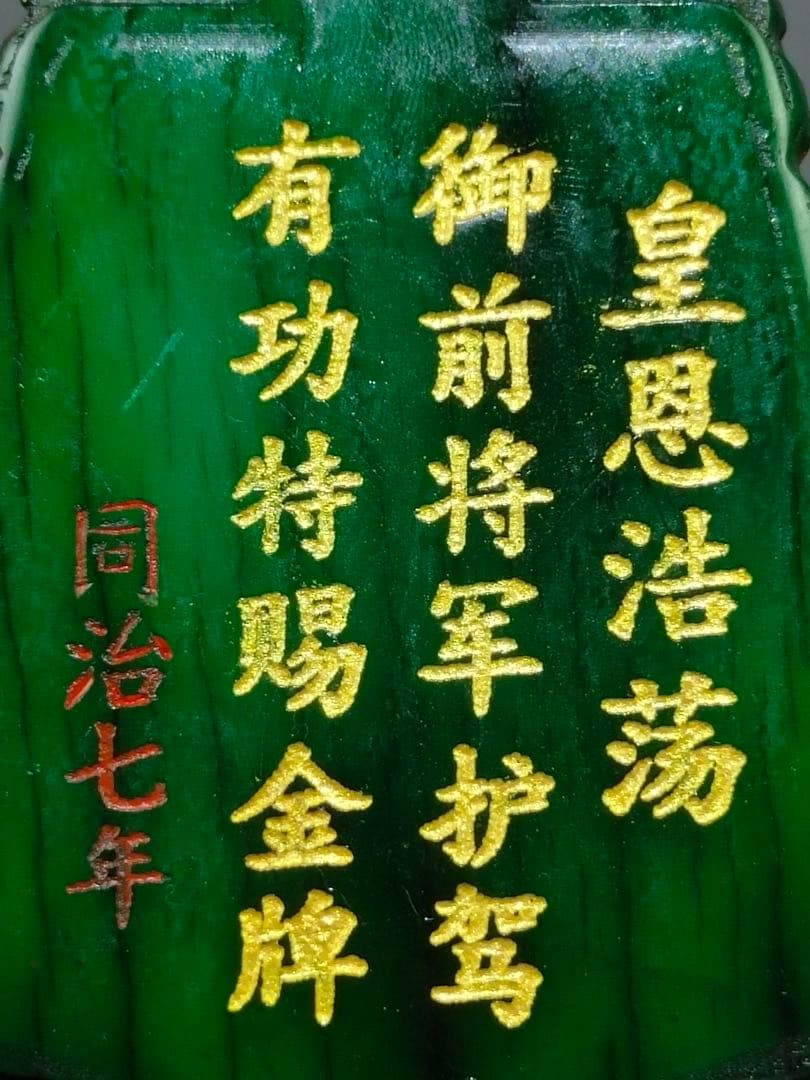 皇恩浩荡
御前将军护驾
有功特赐金牌
同治七年